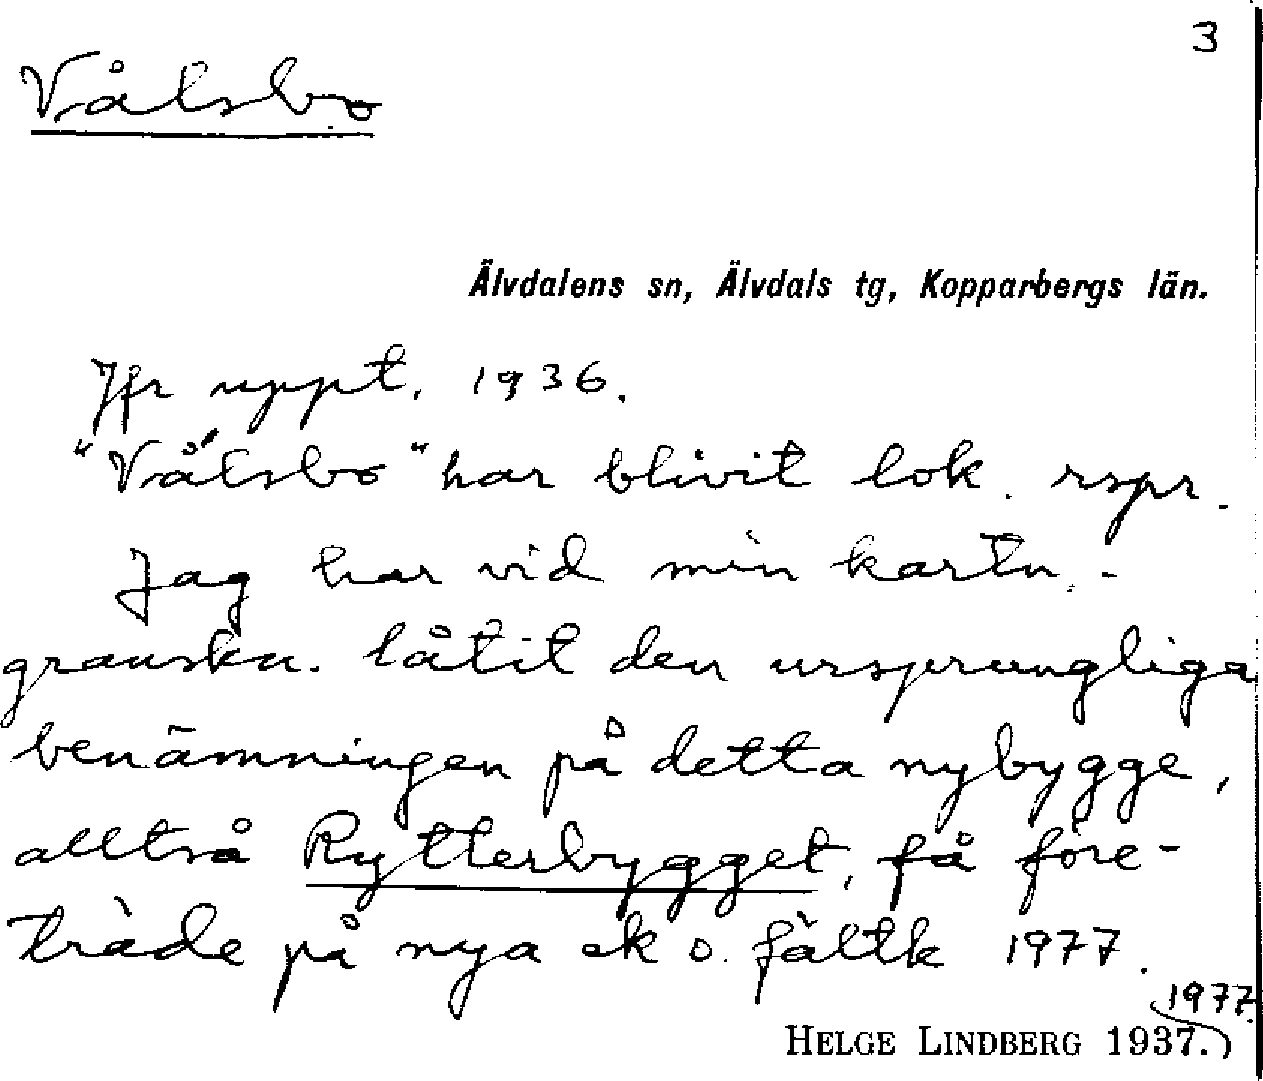 3
Vålsbo
Älvdalens sn, Älvdals tg, Kopparbergs län.
Jfr uppt. 1936.
"Vålsbo" har blivit lok. rspr.
Jag har vid min kartn.-
granskn. låtit den ursprungliga
benämningen på detta nybygge,
alltså Rytterbygget, få före-
träde på nya ek o. fältk 1977.
1977.
HELGE LINDBERG 1937.)